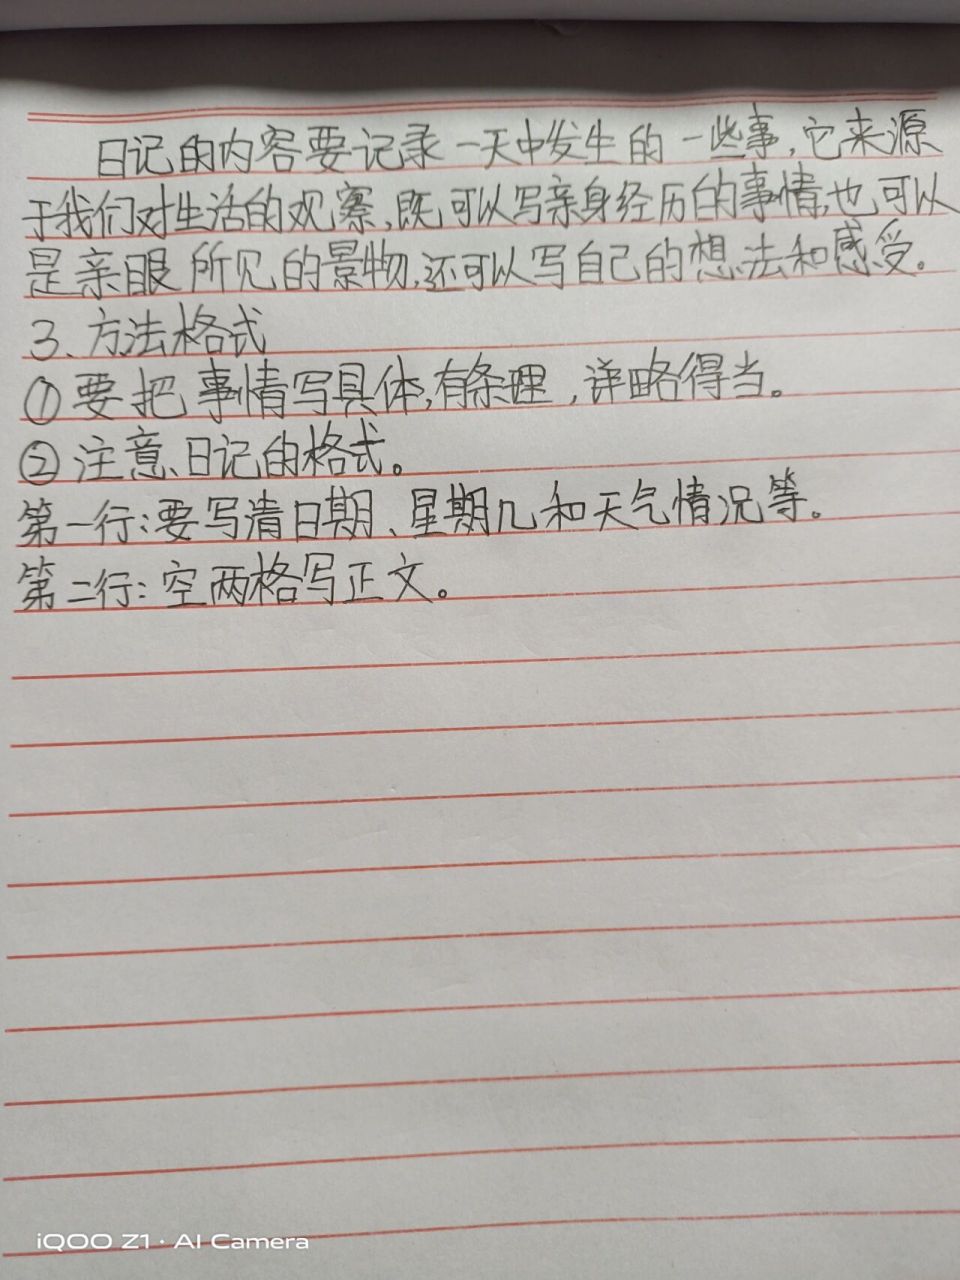 日记的内容要记录一天中发生的一些事,它来源
于我们对生活的观察,既可以写亲身经历的事情,也可以
是亲眼所见的景物,还可以写自己的想法和感受。
3、方法格式
①要把事情写具体,有条理,详略得当。
②注意、日记的格式。
第一行:要写清日期、星期几和天气情况等。
第二行:空两格写正文。
iQOO Z1·AI Camera